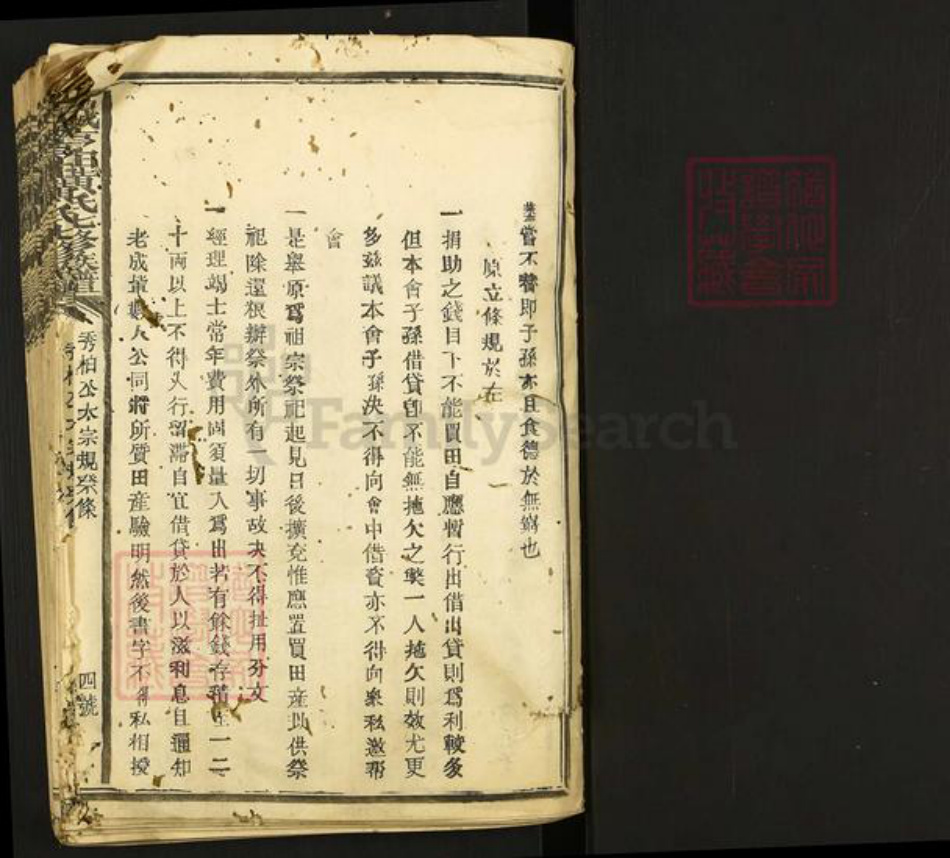 嘗不替即子孫亦且食德於無窮也
原立條規於在
一捐助之錢目下不能買田自應暫行出借出貸則爲利較多
但本會子孫借貸卽不能無拖欠之獘一人拖欠則效尤更
多茲議本會子孫決不得向會中借賫亦不得向衆私邀帮
會
一是舉原爲祖宗祭祀起見日後擴充惟應置買田産以供祭
祀除還粮辦祭外所有一切事故决不得扯用分文
一經理竭士常年費用固須量入爲出若有餘錢存積至一二
十両以上不得久行留滯自宜借貸於人以滋利息且通知
老成填數人公同將所質田産驗明然後書字不得私相授
黃氏七修族譜
秀柏公太宗規祭條
四號
FamilySearch